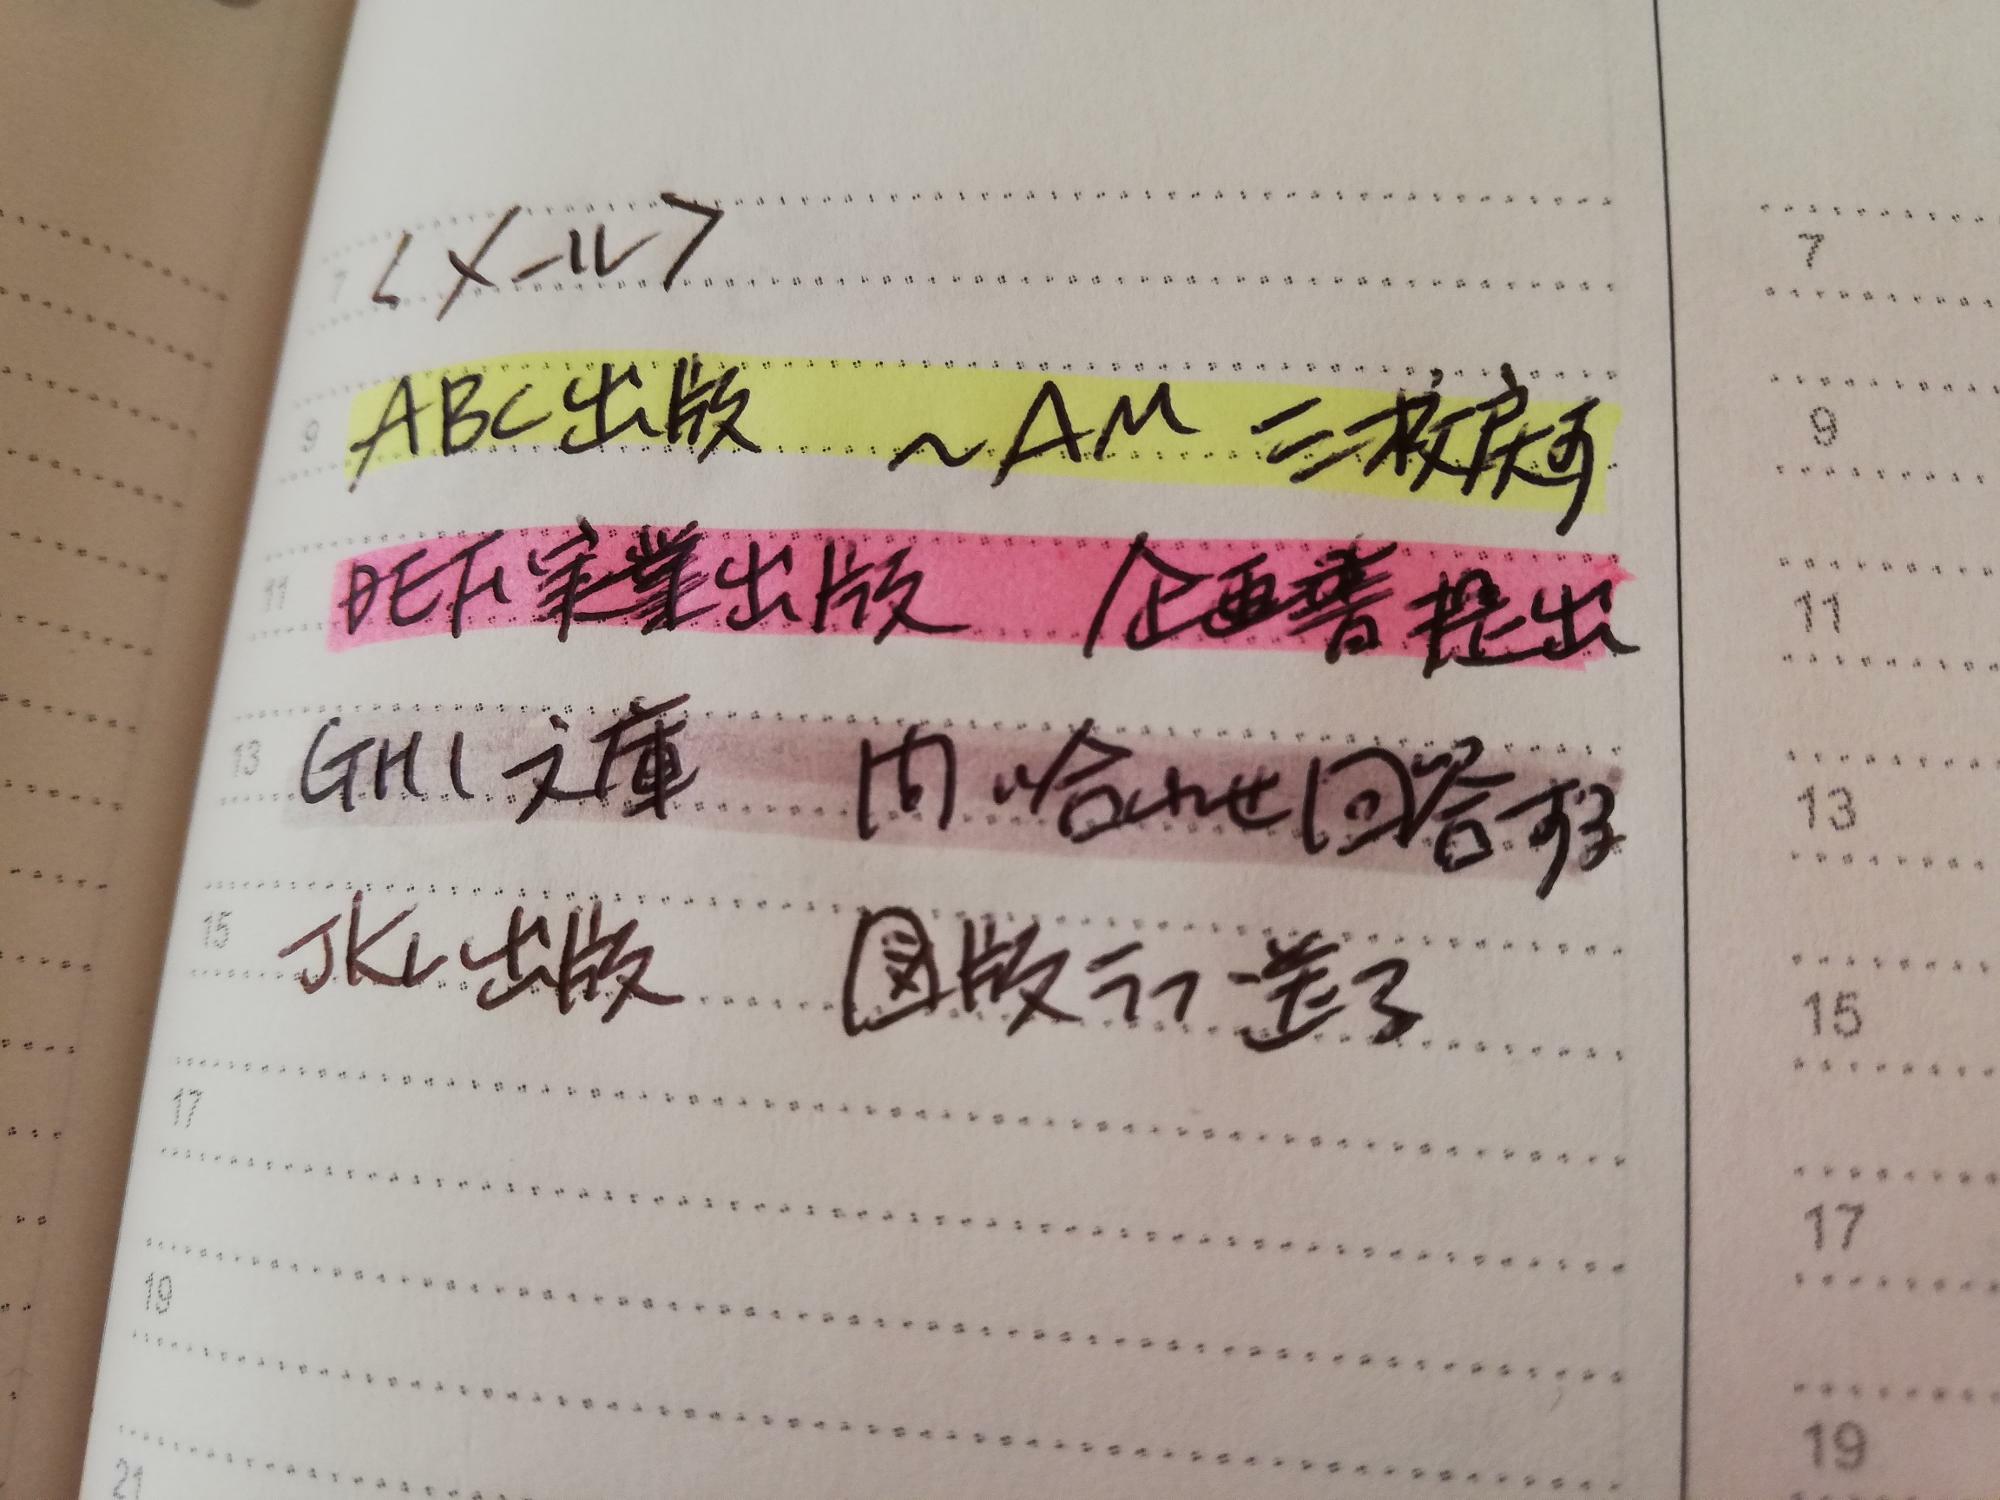 <メール>
ABC出版 ~AM 二校戻す
DEF実業出版 企画書提出
GHI文庫 問い合わせ回答する
JKL出版 図版ラフ送る
7
9
11
13
15
17
19
21
7
9
11
13
15
17
19